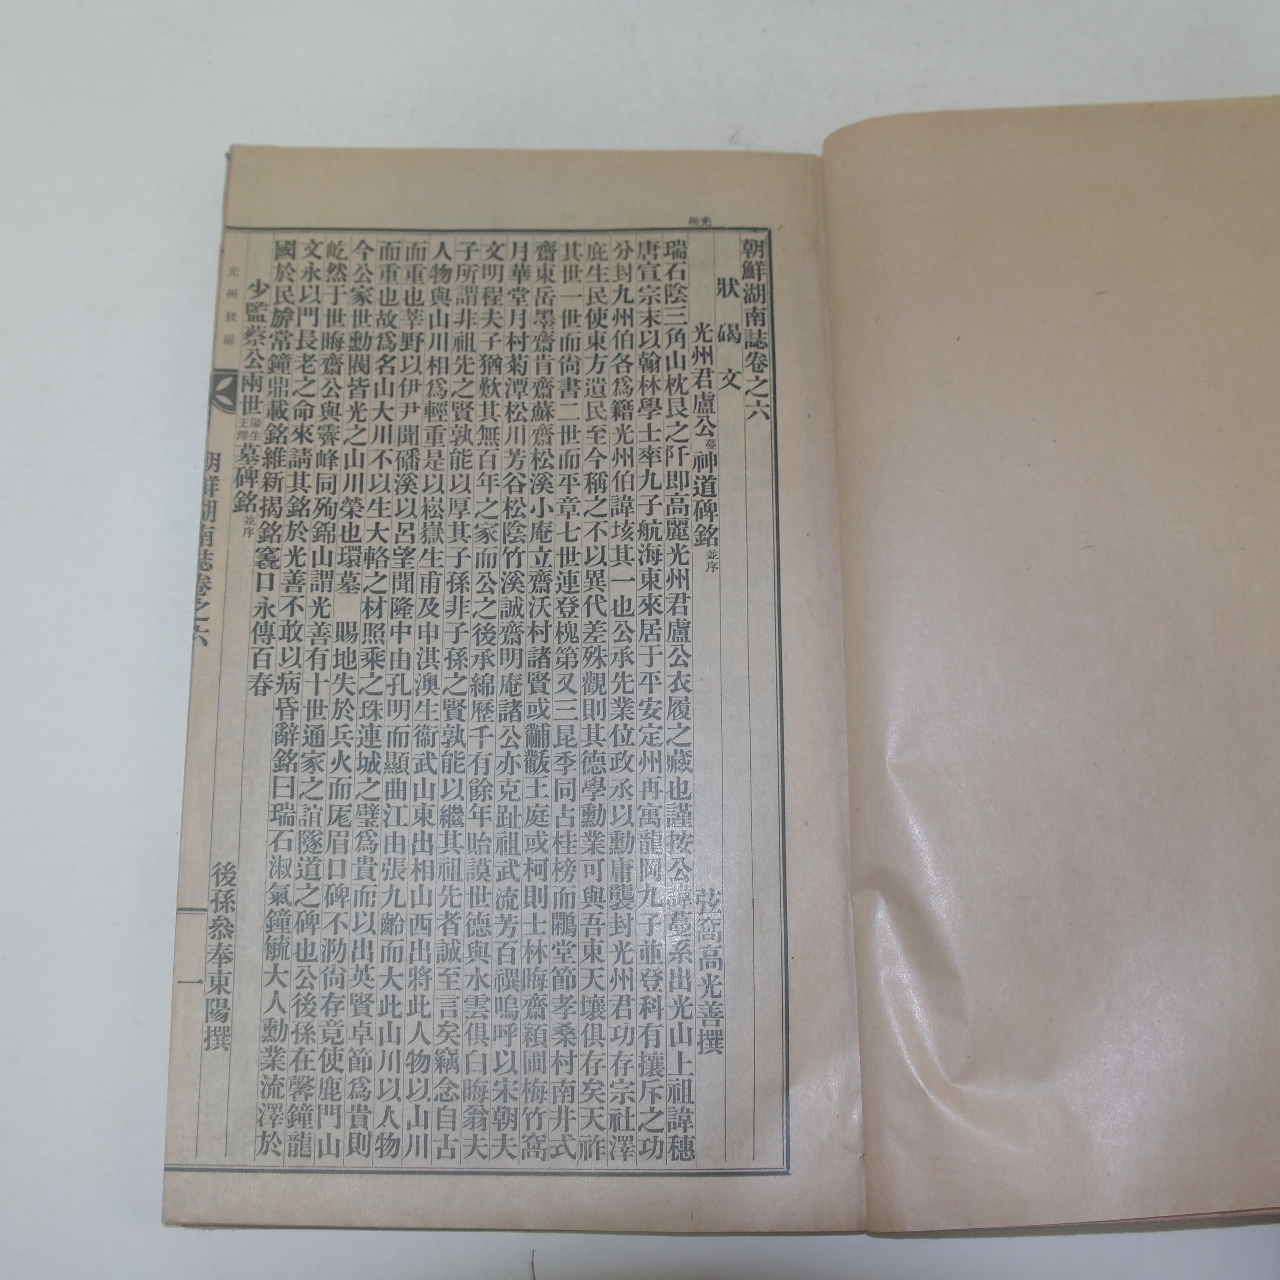 光州
朝鮮湖南誌卷之六
狀碣文
光州君盧公蔓神道碑銘並序
弦窩高光善撰
瑞石陰三角山枕艮之阡即高麗光州君盧公衣履之藏也謹按公諱蔓系出光山上祖諱穗
唐宣宗末以翰林學士率九子航海東來居于平安定州再寓龍岡九子並登科有攘斥之功
分封九州伯各爲籍光州伯諱垓其一也公承先業位政丞以勳庸襲封光州君功存宗社澤
庇生民使東方遺民至今稱之不以異代差殊觀則其德學勳業可與吾東天壤俱存矣天祚
其世一世而尙書二世而平章七世連登槐第又三昆季同占桂榜而鷳堂節孝桑村南井式
齋東岳墨齋肯齋蘇齋松溪小庵立齋沃村諸賢或黼黻王庭或柯則士林晦齋穎圃梅竹窩
月華堂月村菊潭松川芳谷松陰竹溪誠齋明庵諸公亦克趾祖武流芳百禩嗚呼以宋朝夫
文明程夫子猶歎其無百年之家而公之後承綿歷千有餘年貽謨世德與水雲俱白晦翁夫
子所謂非祖先之賢孰能以厚其子孫非子孫之賢孰能以繼其祖先者誠至言矣竊念自古
人物與山川相爲輕重是以崧嶽生甫及申淇澳生衞武山東出相山西出將此人物以山川
而重也莘野以伊尹聞磻溪以呂望聞隆中由孔明而顯曲江由張九齡而大此山川以人物
而重也故爲名山大川不以生大輅之材照乘之珠連城之璧爲貴而以出英賢卓節爲貴則
今公家世勳閥皆光之山川榮也環墓 賜地失於兵火而厖眉口碑不泐尙存竟使鹿門山
屹然于世晦齋公與霽峰同殉錦山謂光善有十世通家之誼隧道之碑也公後孫在馨鐘龍
文永以門長老之命來請其銘於光善不敢以病昏辭銘曰瑞石淑氣鐘毓大人勳業流澤於
國於民旂常鐘鼎載銘維新揭銘窀口永傳百春
少監蔡公兩世陽生主澤墓碑銘並序
後孫叅奉東陽撰
光州狀碣
朝鮮湖南誌卷之六
一